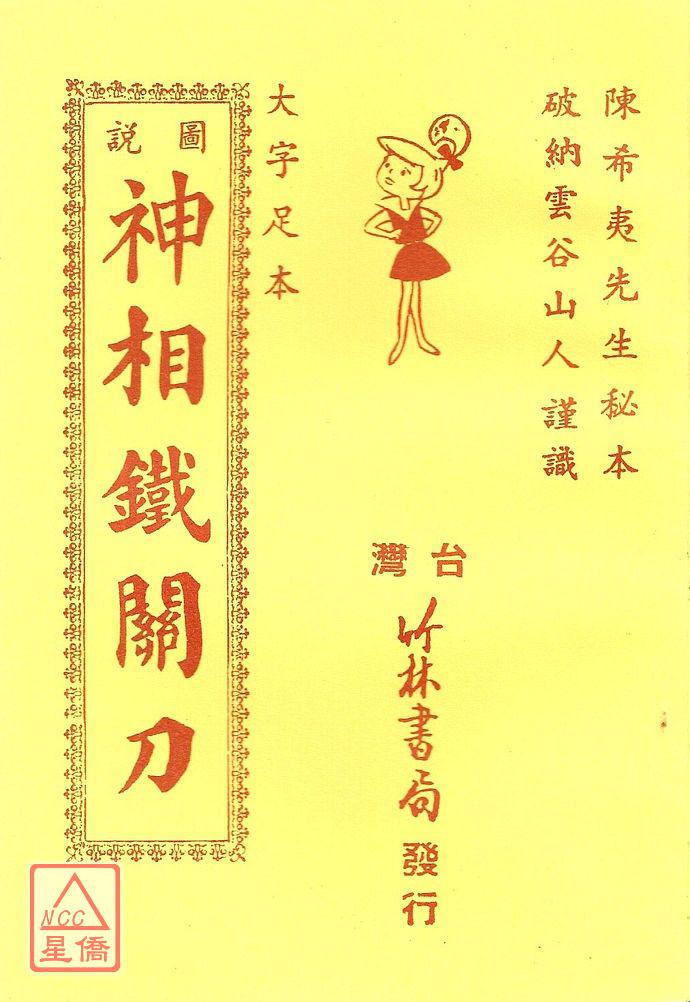 陳希夷先生秘本
破納雲谷山人謹識
台灣
竹林書局發行
大字足本
圖說
神相鐵關刀
NCC
星僑